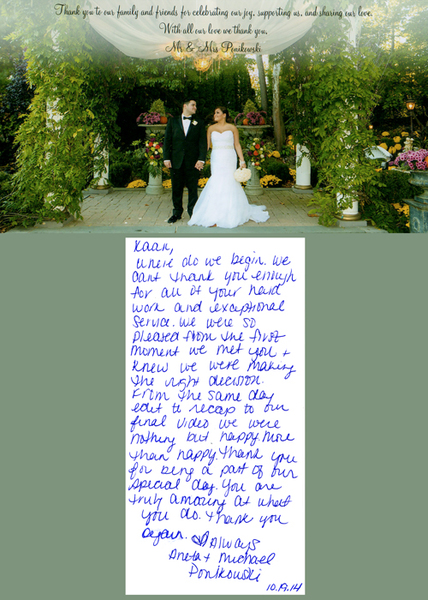 Thank you to our family and friends for celebrating our joy, supporting us, and sharing our love.
With all our love we thank you,
Mr & Mrs Ponikowski
Kaan,
Where do we begin. We
cant thank you enough
for all of your hard
work and exceptional
service. We were so
pleased from the first
moment we met you +
knew we were making
the right decision.
From the same day
edit to recap to our
final video we were
nothing but happy. More
than happy. Thank you
for being a part of our
special day. You are
truly amazing at what
you do. Thank you
again. Always
Aneta + Michael
Ponikowski
10.19.14